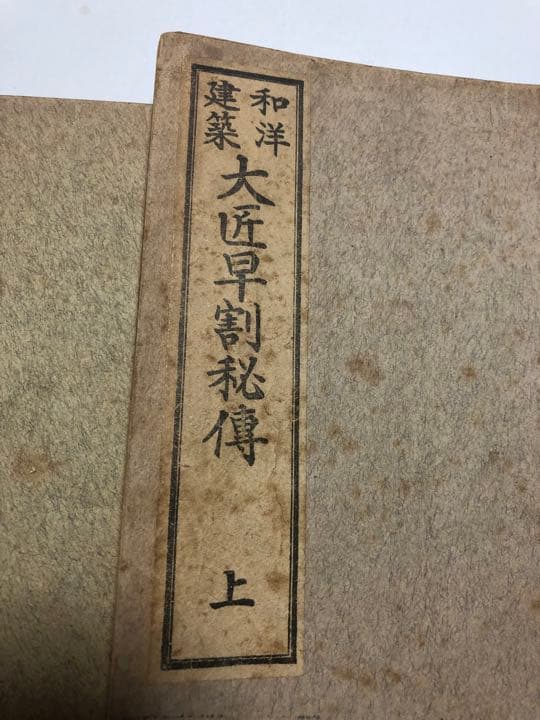 和洋
建築
大匠早割秘傳
上